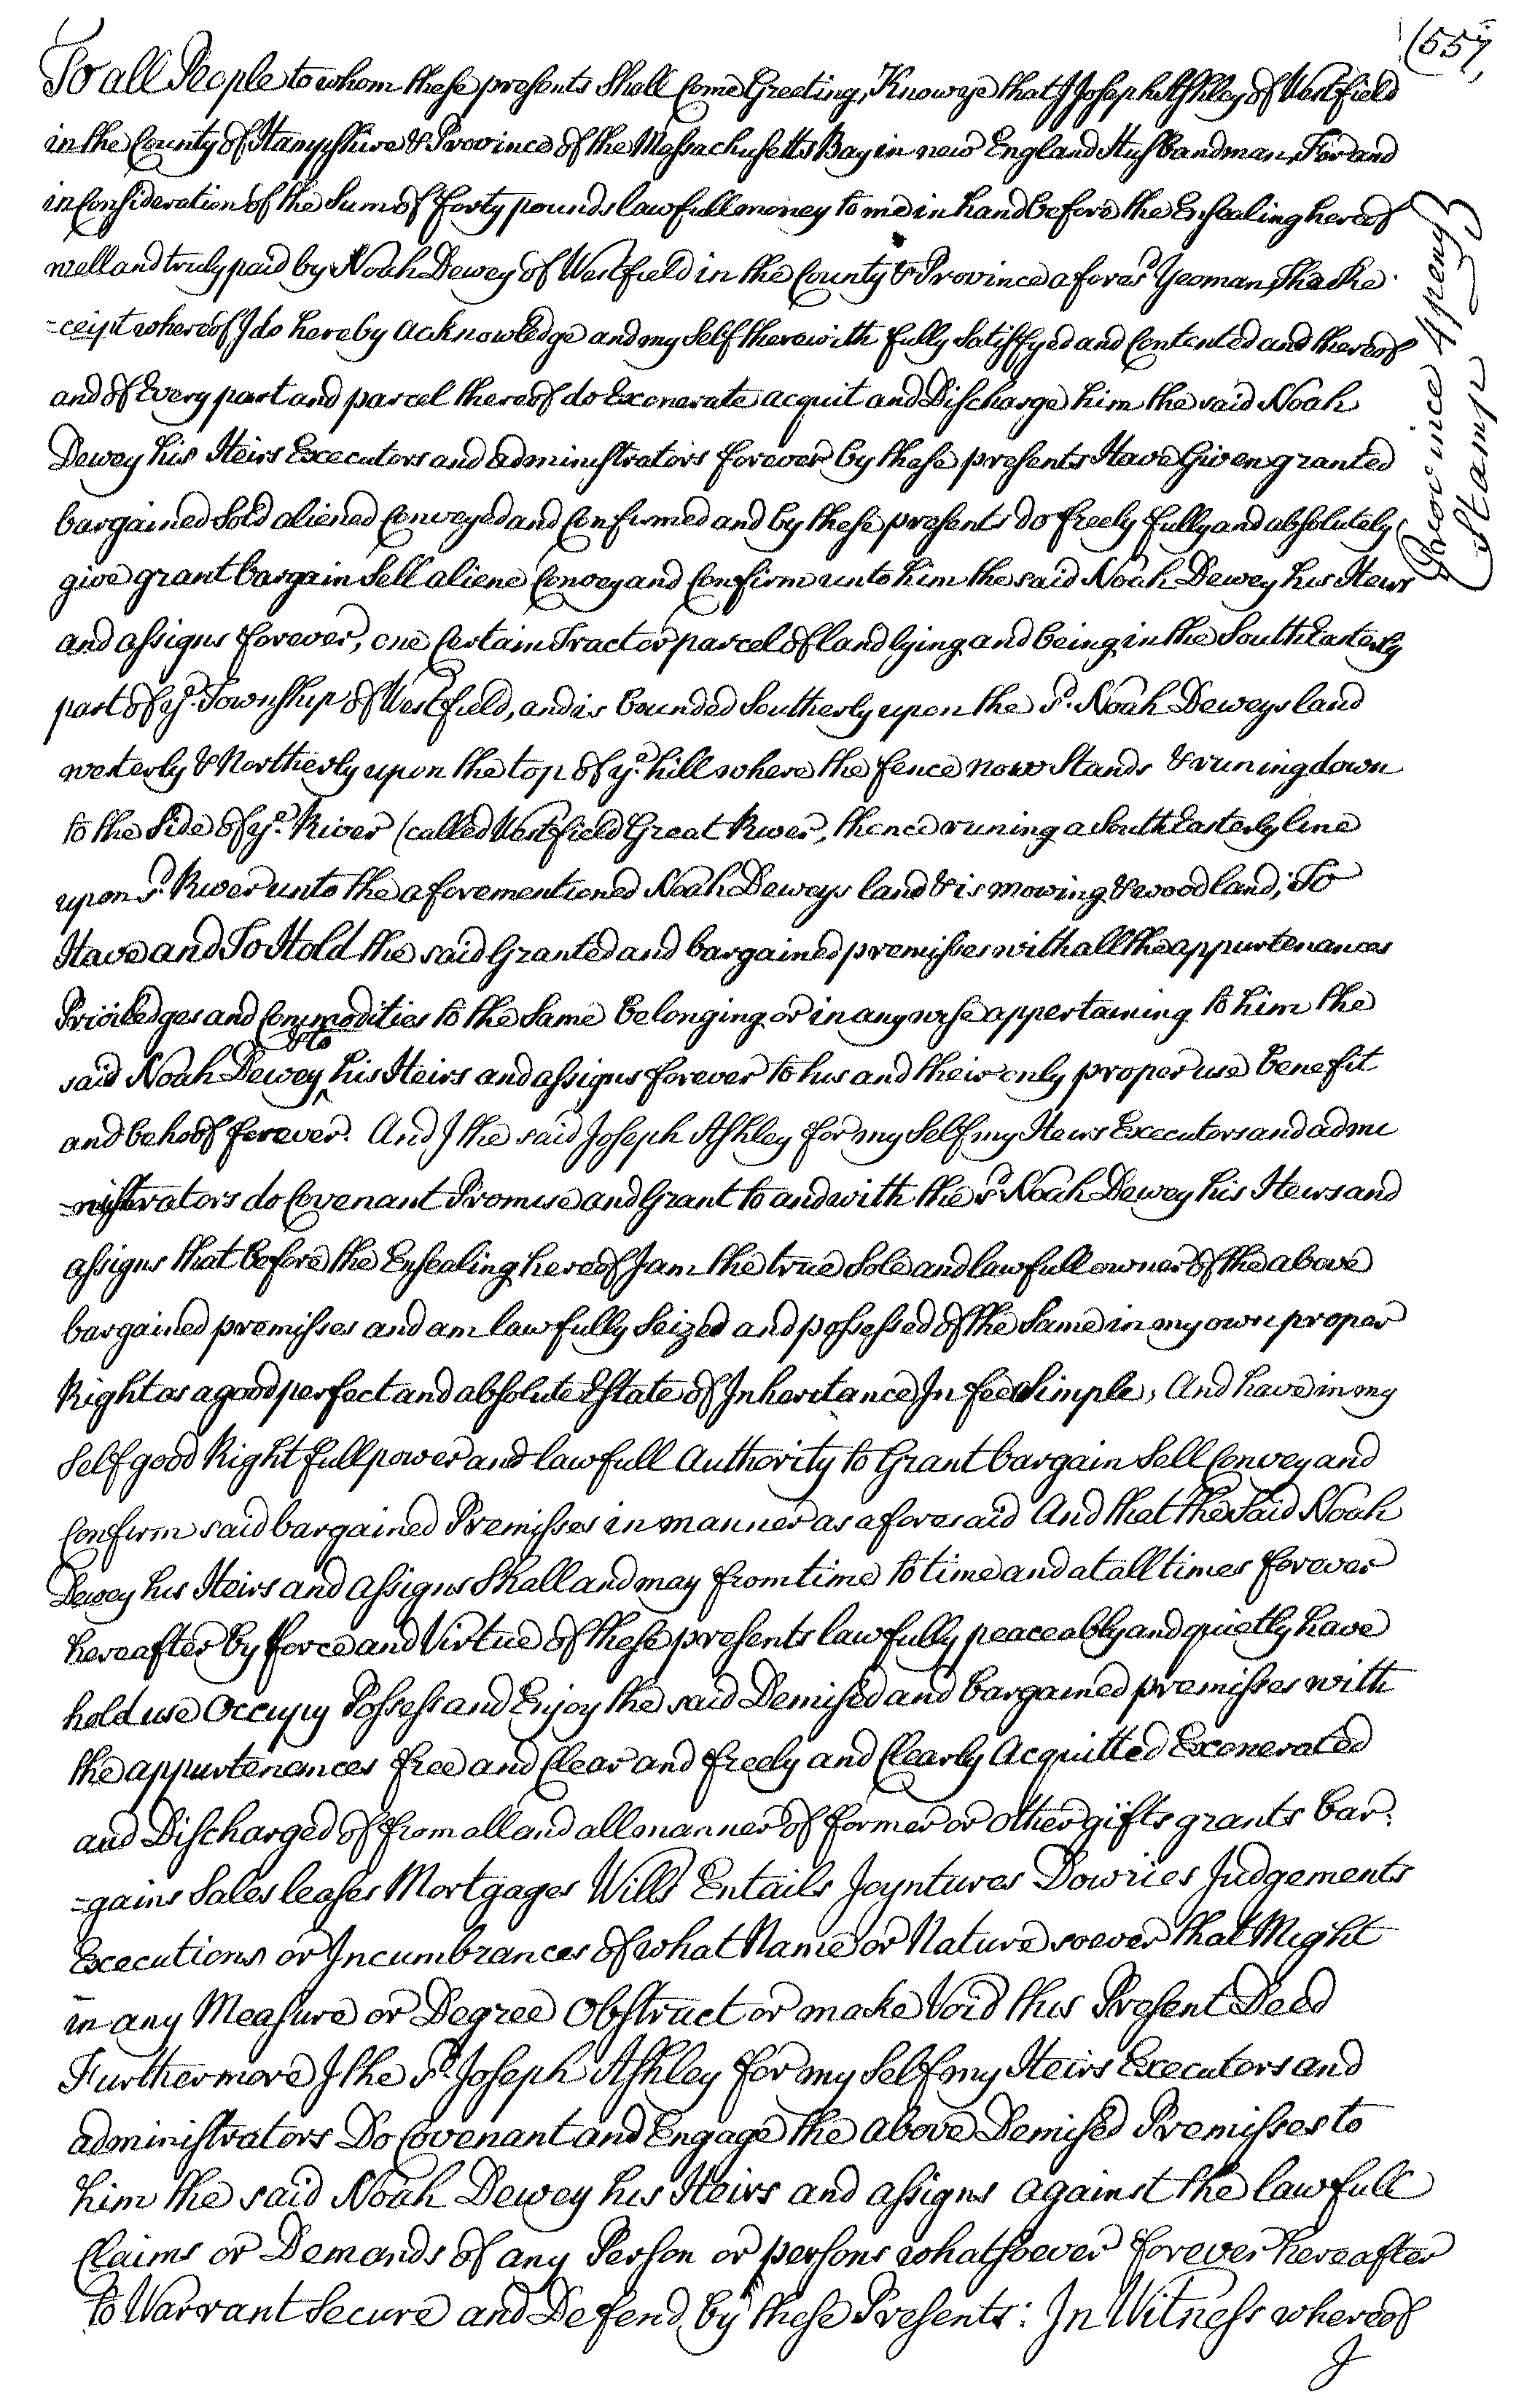 (557,
To all People to whom these presents Shall Come Greeting, Know ye that I Joseph Ashley of Westfield
in the County of Hampshire & Province of the Massachusetts Bay in new England Husbandman, For and
in Consideration of the Sum of forty pounds lawfull money to me in hand before the Ensealing hereof
well and truly paid by Noah Dewey of Westfield in the County & Province afores.d Yeoman, the Re
-ceipt whereof I do hereby acknowledge and my Self therewith fully Satisfyed and Contented and thereof
and of Every part and parcel thereof do Exonerate acquit and Discharge him the said Noah
Dewey his Heirs Executors and administrators forever by these presents Have Given granted
bargained Sold aliened Conveyed and Confirmed and by these presents do freely fully and absolutely
give grant bargain Sell aliene Convey and Confirm unto him the said Noah Dewey his Heirs
and assigns forever, one Certain Tract or parcel of land lying and being in the South Easterly
part of y.e Township of Westfield, and is bounded Southerly upon the s.d Noah Deweys land
westerly & Northerly upon the top of y.e hill where the fence now Stands & runing down
to the Side of y.e River (called Westfield Great River, thence runing a South Easterly line
upon s.d River unto the aforementioned Noah Deweys land & is mowing & wood land; To
Have and To Hold the said Granted and bargained premisses with all the appurtenances
Priviledges and Commodities to the Same belonging or in any wise appertaining to him the
said Noah Dewey & to his Heirs and assigns forever to his and their only proper use benefit
and behoof forever. And I the said Joseph Ashley for my Self my Heirs Executors and admi
-nistrators do Covenant Promise and Grant to and with the s.d Noah Dewey his Heirs and
assigns that before the Ensealing hereof I am the true Sole and lawfull owner of the above
bargained premisses and am lawfully Seized and possessed of the Same in my own proper
Right as a good perfect and absolute Estate of Inheritance In fee Simple; And have in my
Self good Right full power and lawfull Authority to Grant bargain Sell Convey and
Confirm said bargained Premisses in manner as aforesaid And that the Said Noah
Dewey his Heirs and assigns Shall and may from time to time and at all times forever
hereafter by force and Virtue of these presents lawfully peaceably and quietly have
hold use Occupy Possess and Enjoy the said Demised and bargained premisses with
the appurtenances free and Clear and freely and Clearly Acquitted Exonerated
and Discharged of from all and all manner of former or other gifts grants bar-
-gains Sales leases Mortgages Wills Entails Joyntures Dowries Judgements
Executions or Incumbrances of what Name or Nature soever that Might
in any Measure or Degree Obstruct or make Void this Present Deed
Furthermore I the s.d Joseph Ashley for my Self my Heirs Executors and
administrators Do Covenant and Engage the above Demised Premisses to
him the said Noah Dewey his Heirs and assigns against the lawfull
Claims or Demands of any Person or persons whatsoever forever hereafter
to Warrant Secure and Defend by these Presents: In Witness whereof
I
Province 4 peny
Stamp